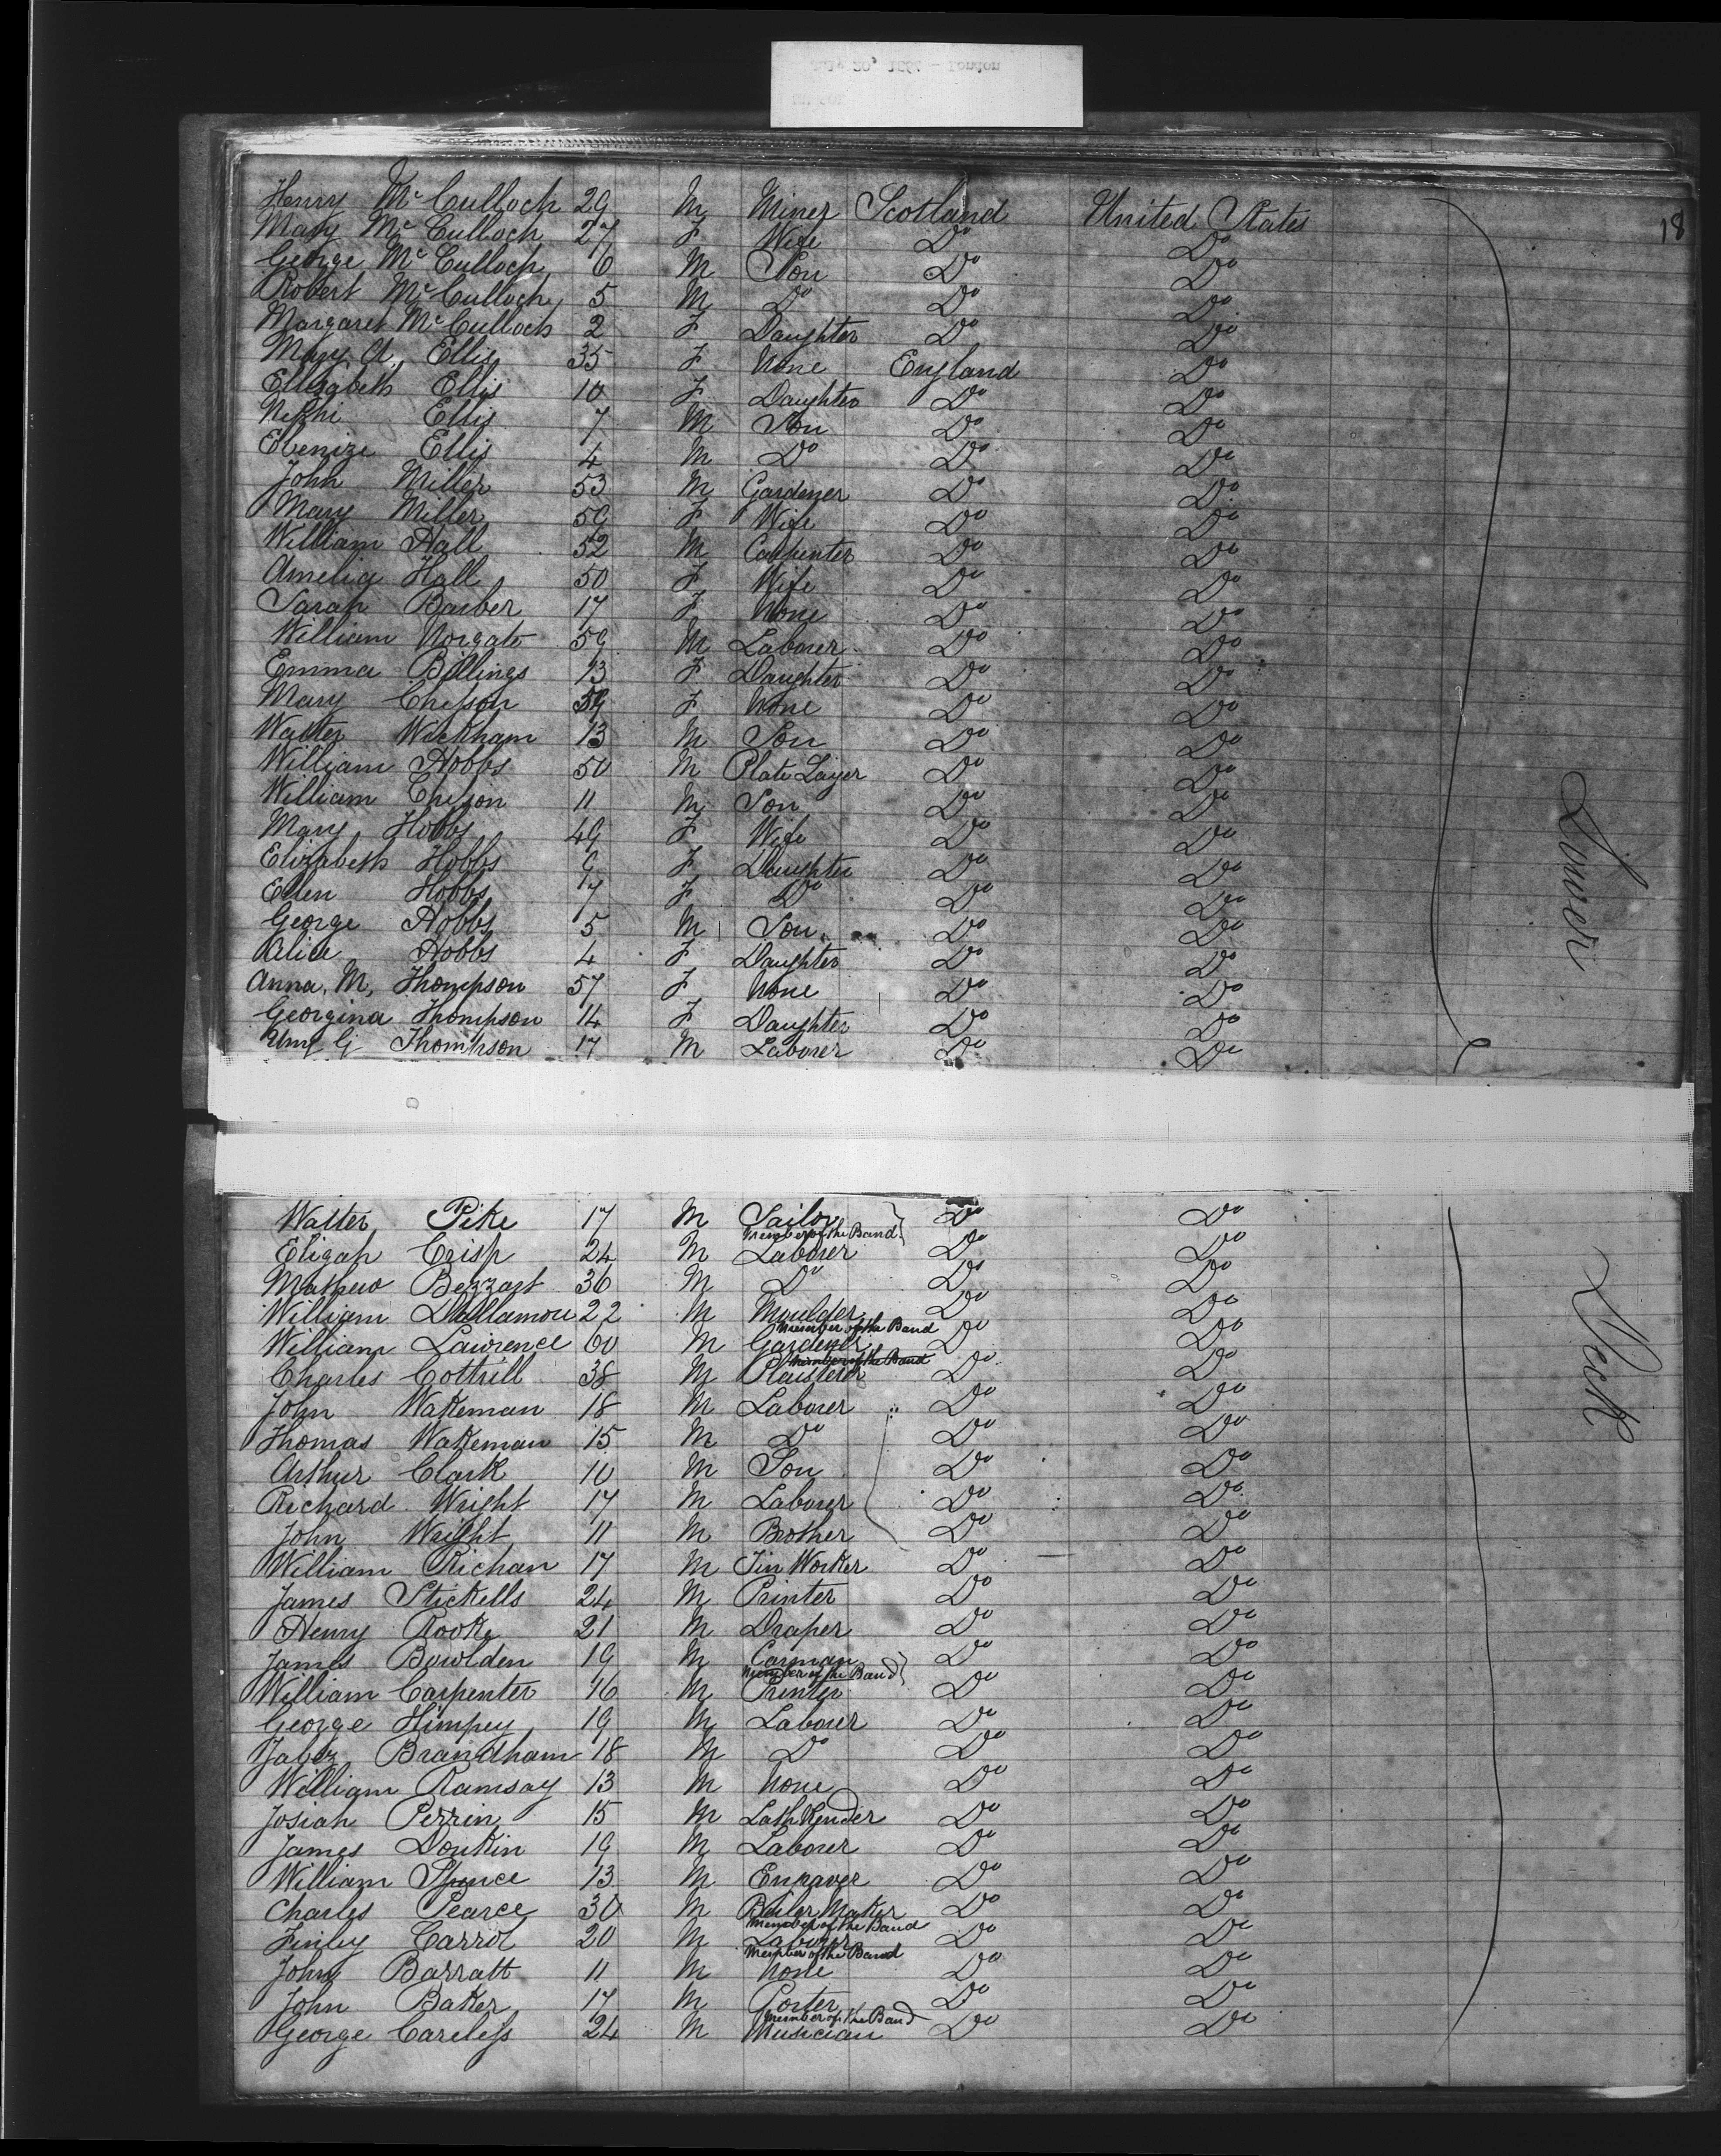 July 20, 1864 - London
Henry McCulloch 29 M Miner Scotland United States 18
Mary McCulloch 27 F Wife Do Do
George McCulloch 6 M Son Do Do
Robert McCulloch 5 M Do Do Do
Margaret McCulloch 2 F Daughter Do Do
Mary A. Ellis 35 F None England Do
Ellizabeth Ellis 10 F Daughter Do Do
Nephi Ellis 7 M Son Do Do
Ebenize Ellis 4 M Do Do Do
John Miller 53 M Gardener Do Do
Mary Miller 59 F Wife Do Do
William Hall 52 M Carpenter Do Do
Amelia Hall 50 F Wife Do Do
Sarah Barber 17 F None Do Do
William Norgate 59 M Laborer Do Do
Emma Billings 13 F Daughter Do Do
Mary Chesson F None Do Do
Walter Wickham 13 M Son Do Do
William Hobbs 50 M Plate Layer Do Do
William Chesson 11 M Son Do Do
Mary Hobbs 49 F Wife Do Do
Elizabeth Hobbs 9 F Daughter Do Do
Ellen Hobbs 7 F Do Do Do
George Hobbs 5 M Son Do Do
Alice Hobbs 4 F Daughter Do Do
Anna. M, Thompson 57 F None Do Do
Georgina Thompson 14 F Daughter Do Do
Wm G Thompson 17 M Laborer Do Do
Lower
Walter Pike 17 M Tailor Do Do
Member of the Band
Eligah Crisp 24 M Laborer Do Do
Mathew Bezzant 36 M Do Do Do
William Dallamore 22 M Moulder Do Do
Member of the Band
William Lawrence 60 M Gardener Do Do
Member of the Band
Charles Cottrill 38 M Plaisterer Do Do
John Wakeman 18 M Laborer Do Do
Thomas Wakeman 15 M Do Do Do
Arthur Clark 10 M Son Do Do
Richard Wright 17 M Laborer Do Do
John Wright 11 M Brother Do Do
William Richan 17 M Tin Worker Do Do
James Stickells 24 M Printer Do Do
Henry Rooke 21 M Draper Do Do
James Bowlden 19 M Carman Do Do
Member of the Band
William Carpenter 16 M Printer Do Do
George Himpey 19 M Laborer Do Do
Jabez Brandham 18 M Do Do Do
William Ramsay 13 M None Do Do
Josiah Perrin 15 M Lath Render Do Do
James Donkin 19 M Laborer Do Do
William Spence 13 M Engraver Do Do
Charles Pearce 30 M Boiler Maker Do Do
Member of the Band
Finley Carrol 20 M Laborer Do Do
Member of the Band
John Barratt 11 M None Do Do
John Baker 17 M Porter Do Do
Member of the Band
George Careless 24 M Musician Do Do
Deck